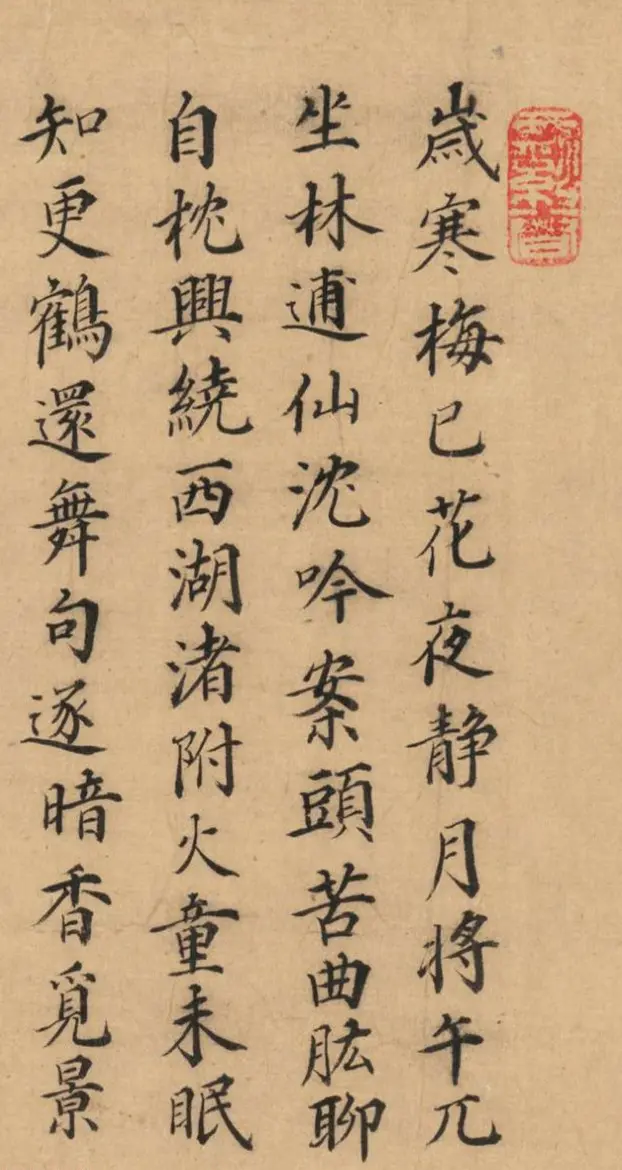 歲寒梅已花夜靜月將午兀
坐林逋仙沈吟案頭苦曲肱聊
自枕興繞西湖渚附火童未眠
知更鶴還舞句逐暗香覓景